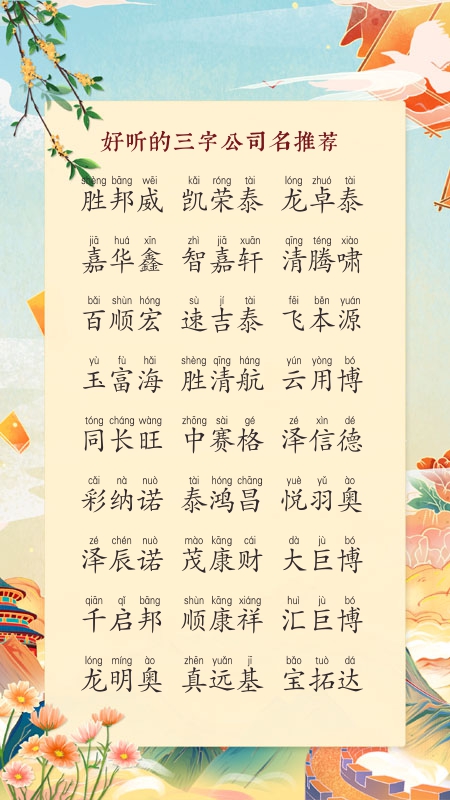 好听的三字公司名推荐
shèng bāng wēi kǎi róng tài lóng zhuó tài
胜邦威 凯荣泰 龙卓泰
jiā huá xīn zhì jiā xuān qīng téng xiào
嘉华鑫 智嘉轩 清腾啸
bǎi shùn hóng sù jí tài fēi běn yuán
百顺宏 速吉泰 飞本源
yù fù hǎi shèng qīng háng yún yòng bó
玉富海 胜清航 云用博
tóng cháng wàng zhōng sài gé zé xìn dé
同长旺 中赛格 泽信德
cǎi nà nuò tài hóng chāng yuè yǔ ào
彩纳诺 泰鸿昌 悦羽奥
zé chén nuò mào kāng cái dà jù bó
泽辰诺 茂康财 大巨博
qiān qǐ bāng shùn kāng xiáng huì jù bó
千启邦 顺康祥 汇巨博
lóng míng ào zhēn yuǎn jī bǎo tuò dá
龙明奥 真远基 宝拓达